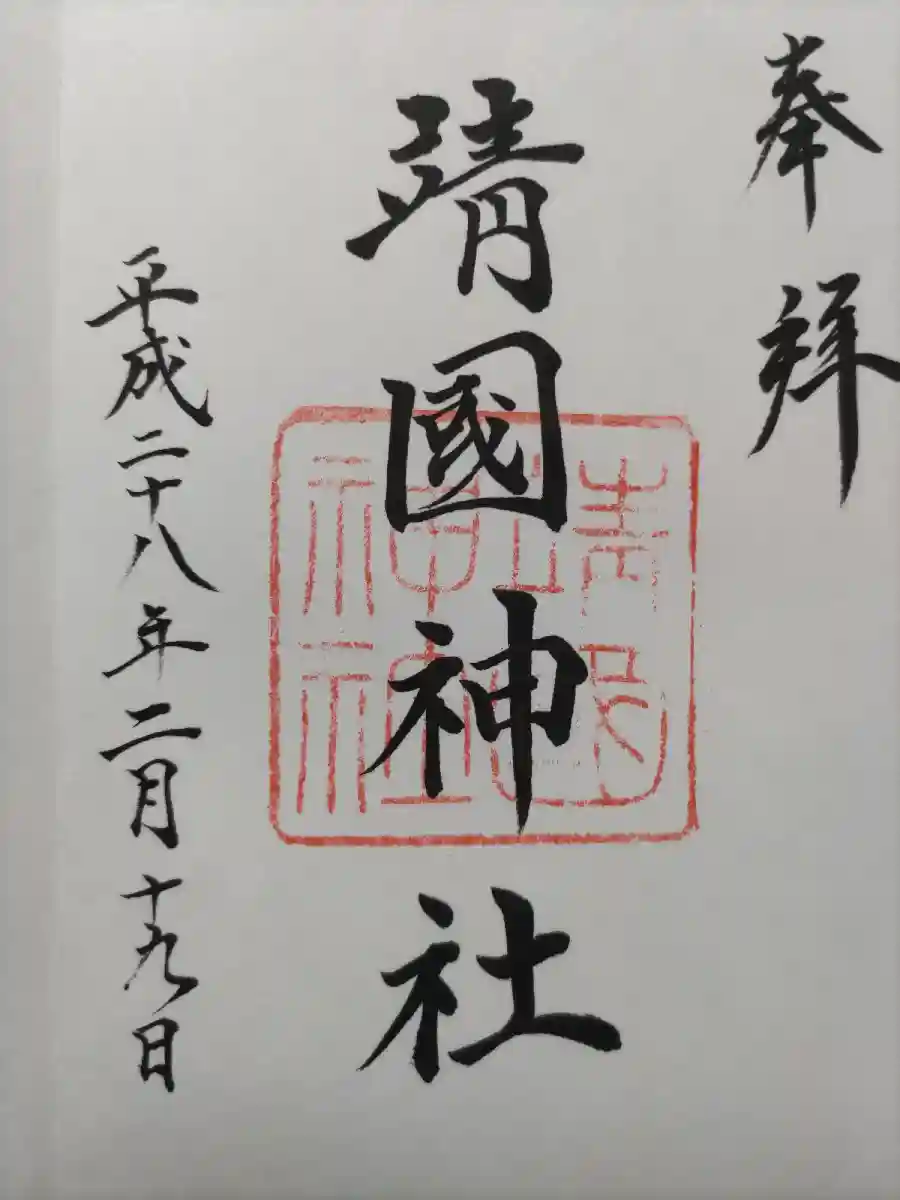 奉拜
靖國神社
靖國神社
平成二十八年二月十九日